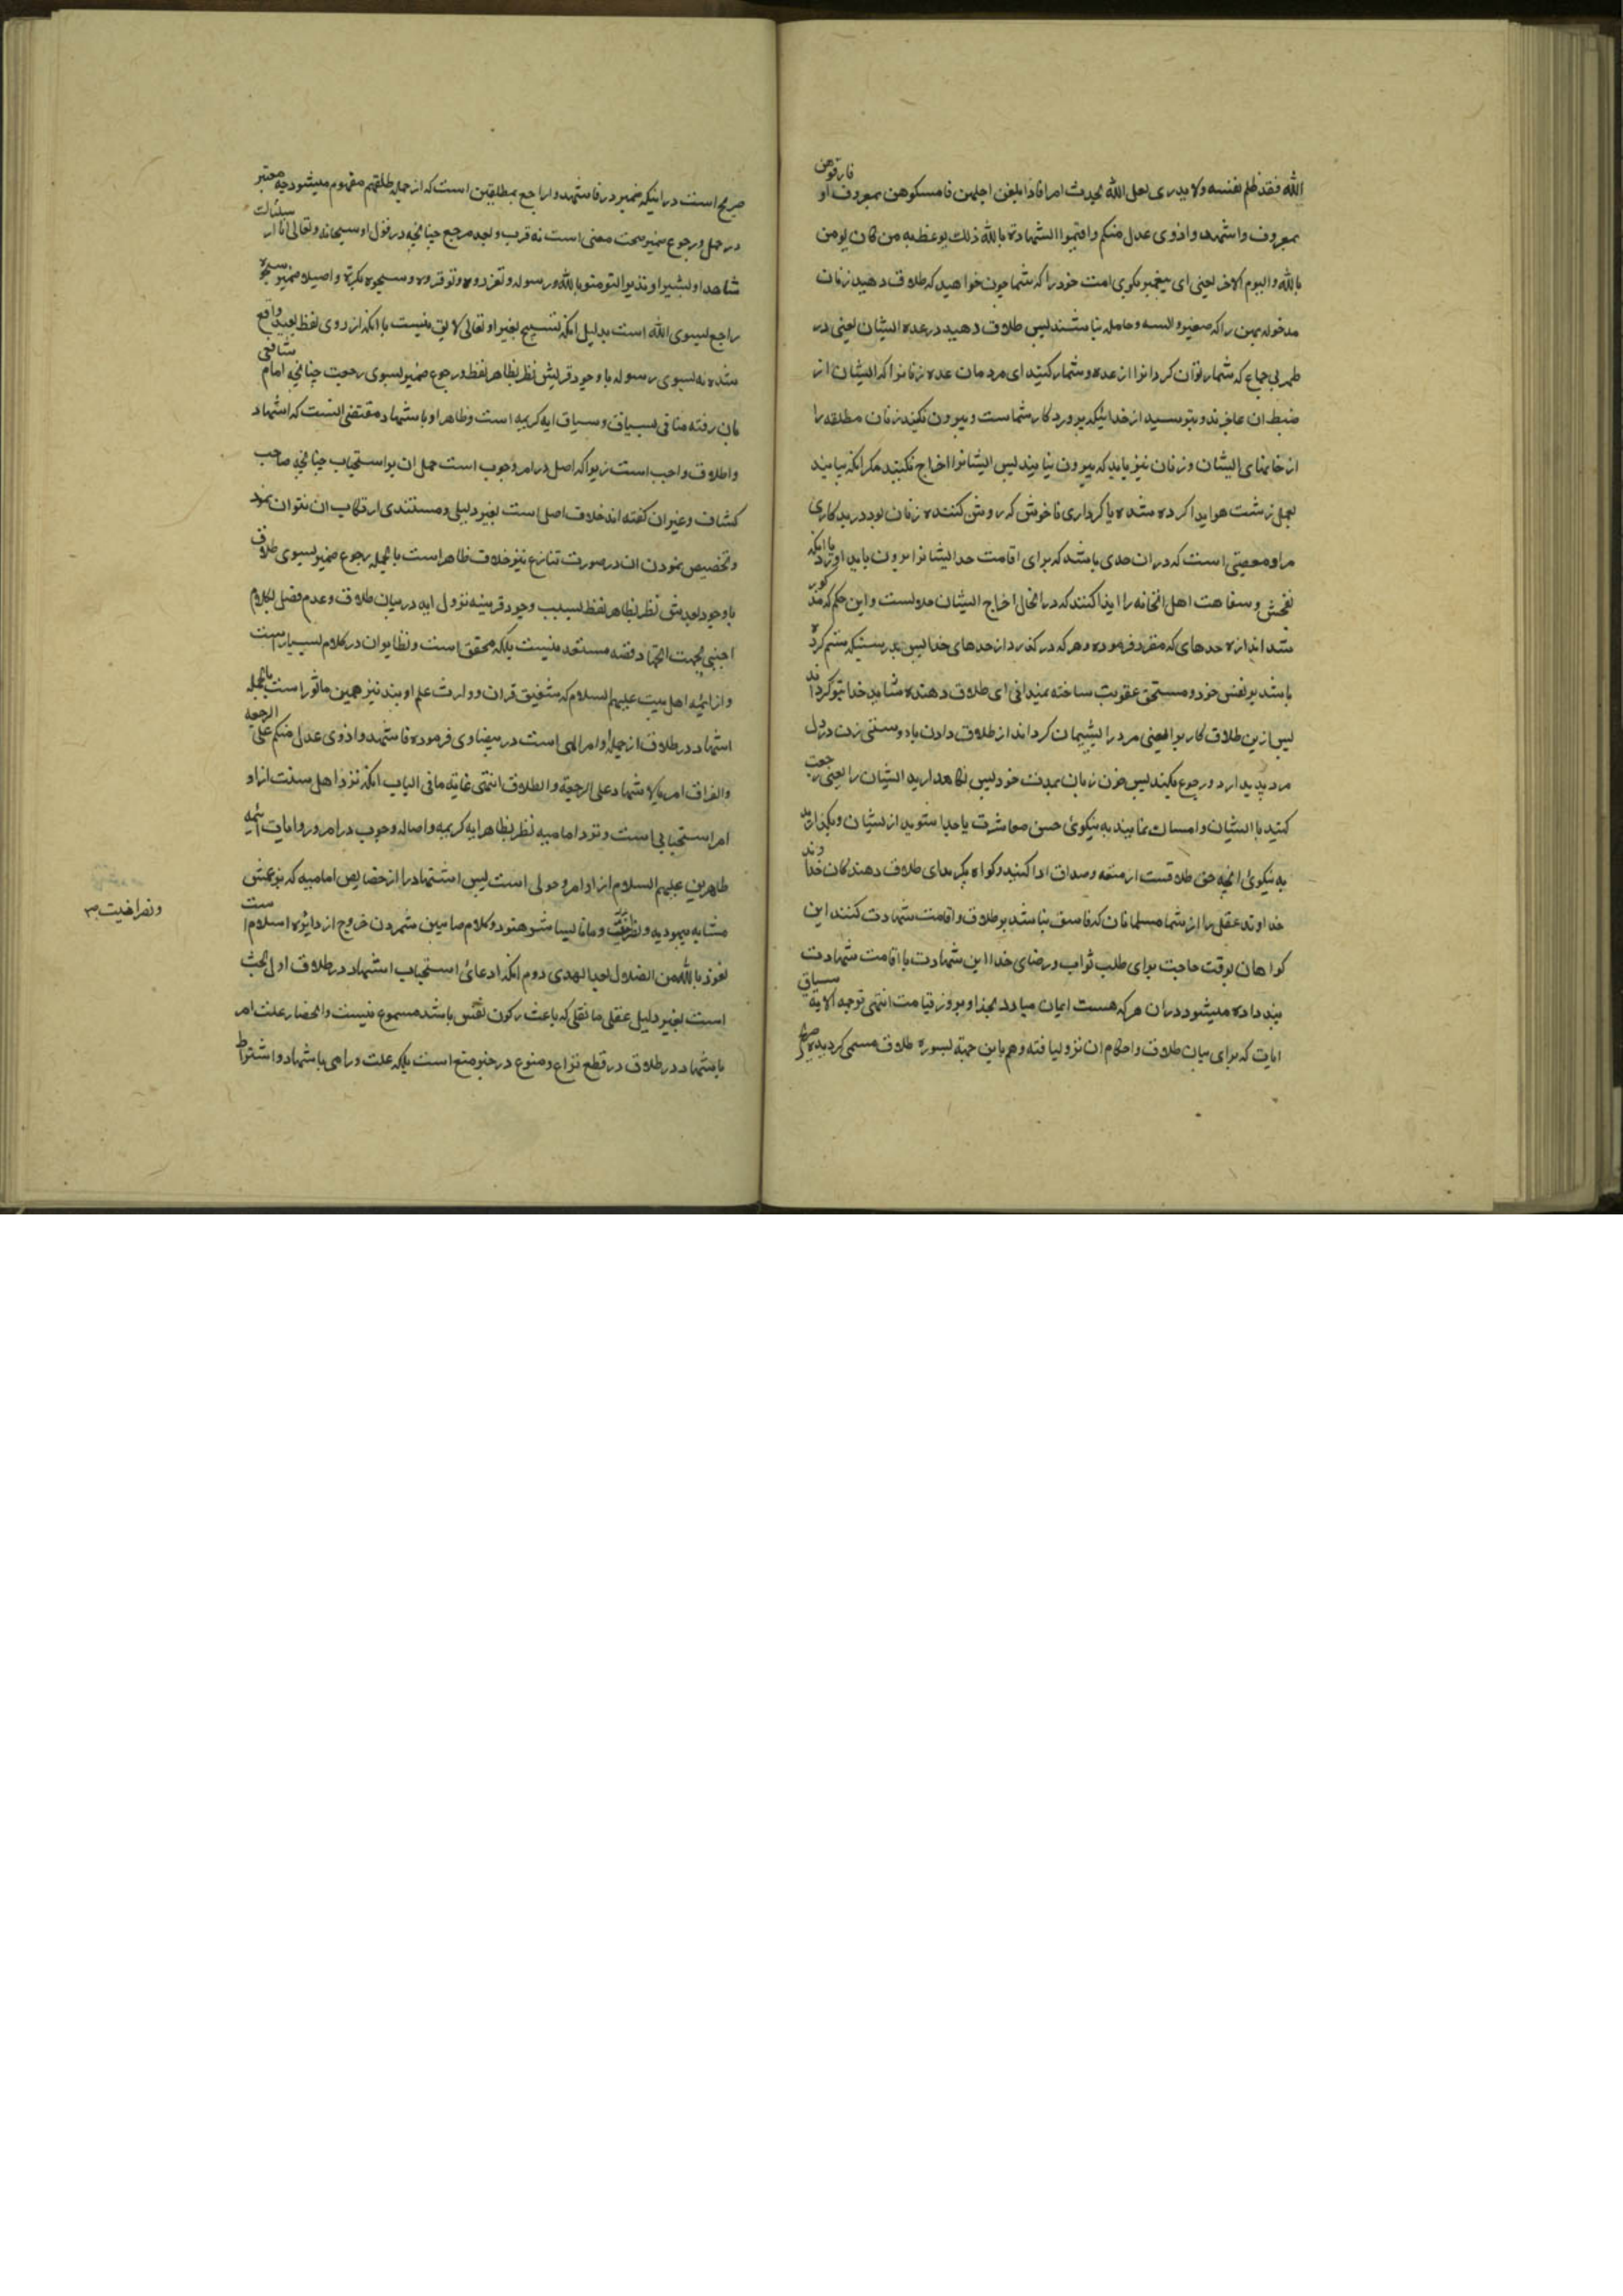 الله فقد ظلم نفسه ولا يدرى لعل الله يحدث امرا فاذا بلغن اجلهن فامسكوهن بمعروف او فارقوهن
بمعروف واشهدوا ذوى عدل منكم واقيموا الشهادة بالله ذلك يوعظ به من كان يومن
بالله واليوم الاخر یعنی ای پیغمبر بکوی امت خود را که شما چون خواهید که طلاق دهید زنان
مدخوله بهن را که صغیره و ایسه و حامله نباشند پس طلاق دهید در عده ایشان یعنی در
طهر بی جماع که شمار توان کرد انرا از عده و شمار کنید ای مردمان عده زنانرا که ایشان از
ضبط ان عاجزند و بترسید از خدائیکه پرورد کار شماست و بیرون نکنید زنان مطلقه را
از خانهای ایشان و زنان نیز باید که بیرون نیایند پس ایشانرا اخراج نکنید مکر انکه بیایند
بعمل زشت هویدا کرده شده یا کرداری ناخوش که روشن کننده زنان بود در بدکاری
مراد معصیتی است که در ان حدی باشد که برای اقامت حد ایشانرا بیرون باید اورد یا انکه
بفحش و سفاهت اهل انخانه را ایذا کنند که در انحال اخراج ایشان رواست و این حکم که مذکور
شد اندازه حدهای که مقرر فرموده و هر که در کذرد از حدهای خدا پس بدرستیکه ستم کرده
باشد بر نفس خود و مستحق عقوبت ساخته نمیدانی ای طلاق دهنده شاید خدا تو کرداند
پس ازین طلاق کاریرا یعنی مرد را پشیمان کرداند از طلاق دادن یا دوستی زن در دل
مرد پدید ارد و رجوع بکند پس چون زنان بمدت خود پس نکاهدارید ایشان را یعنی رجعت
کنید با ایشان و امساک نمایند به نیکوئی حسن معاشرت یا جدا شوید از ایشان و بکذارید
به نیکوئی انچه حق طلاقست از متعه و صداق ادا کنید و کواه بکیرید ای طلاق دهندکان
خداوند عقل را از شما مسلمانان که فاسق نباشد بر طلاق و اقامت شهادت کنند این
کواهان بوقت حاجت برای طلب ثواب و رضای خدا این شهادت با اقامت شهادت
پند داده میشود دران هر که هست ایمان میارد بخدا و بروز قیامت انتهی ترجمه الایه سیاق
ایات که برای بیان طلاق و احکام ان نزول یافته و هم باین جهه بسوره طلاق مسمی کردیده صریح
صریح است در اینکه ضمیر در فاشهدوا راجع بمطلقین است که از جمله طلقتم مفهوم میشود چه معتبر
در حمل و رجوع ضمیر صحت معنی است نه قرب و بعد مرجع چنانچه در قول او سبحانه و تعالی انا ارسلناک
شاهدا و مبشرا و نذیرا لتومنوا بالله و رسوله و تعزروه و توقروه و تسبحوه بکرة و اصیلا ضمیر تسبحوه
راجع بسوی الله است بدلیل انکه تسبیح بغیر او تعالی لایق نیست با انکه از روی لفظ بعید واقع
شده نه بسوی رسوله با وجود قربش نظر بظاهر لفظ و رجوع ضمیر بسوی رجعت چنانچه امام شافعی
بان رفته منافی سیاق و سباق ایه کریمه است و ظاهر او باشهاد مقتضی انست که اشهاد
و اطلاق واجب است زیرا که اصل در امر وجوب است حمل ان بر استحباب چنانچه صاحب
کشاف و غیران کفته اند خلاف اصل است بغیر دلیلی و مستندی ارتکاب ان نتوان نمود
و تخصیص نمودن ان در صورت تنازع نیز خلاف ظاهر است بالجمله رجوع ضمیر بسوی طلاق
با وجود بعدش نظر بظاهر لفظ بسبب وجود قرینه نزول ایه در بیان طلاق و عدم فصل بکلام
اجنبی بجهت اتحاد قصه مستبعد نیست بلکه محقق است و نظایران در کلام بسیار است
و از ائمه اهل بیت علیهم السلام که شفیق قران و وارث علم اویند نیز همین ماثور است بالجمله
اشهاد در طلاق از جمله اوامر الهی است در بیضاوی فرموده فاشهدوا ذوی عدل منکم علی الرجعه
والفراق امر بالاشهاد علی الرجعة والطلاق انتهی غایته ما فی الباب انکه نزد اهل سنت ازاد
امر استحبابی است و نزد امامیه نظر بظاهر ایه کریمه و اصاله وجوب در امر و روایات ائمه
طاهرین علیهم السلام از اوامر وجوبی است پس اشتهاد را از خصایص امامیه که
مشابه بیهودیه و نصرانیت و مانا بسایر هنود و کلام صابئین شمردن خروج از دایره اسلام است
نعوذ بالله من الضلال بعد الهدی دوم انکه ادعائی استحباب اشهاد در طلاق اول بحث
است بغیر دلیل عقلی یا نقلی که باعث رکون نفس باشد مسموع نیست و انحصار علت امر
باشهاد در طلاق در قطع نزاع ممنوع در حیز منع است بلکه علت و رای باشهاد و اشتراط
ونصرانیت ص